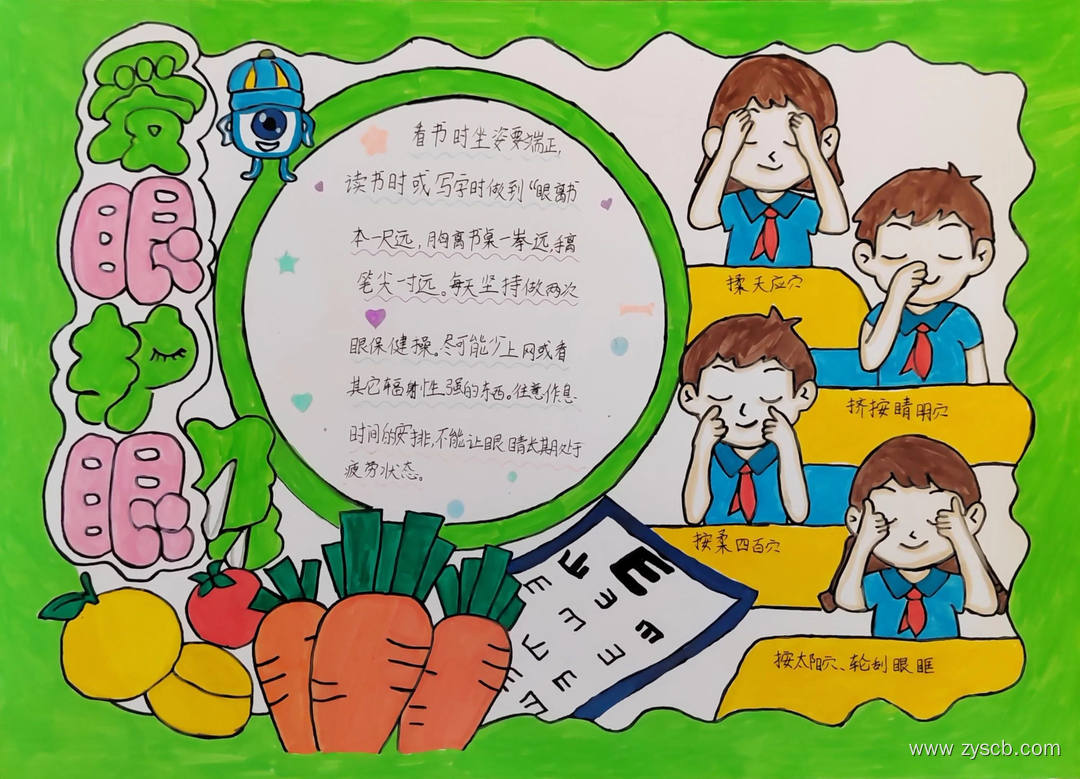 爱眼护眼
看书时坐姿要端正,
读书时或写字时做到“眼离书
本一尺远,胸离书桌一拳远,手离
笔尖一寸远。每天坚持做两次
眼保健操。尽可能少上网或看
其它辐射性强的东西。注意作息
时间的安排,不能让眼睛长期处于
疲劳状态。
揉天应穴
挤按睛明穴
按柔四百穴
按太阳穴、轮刮眼眶
E
E
E
E
E
E
E
E
E
E
E
www.zyscb.com